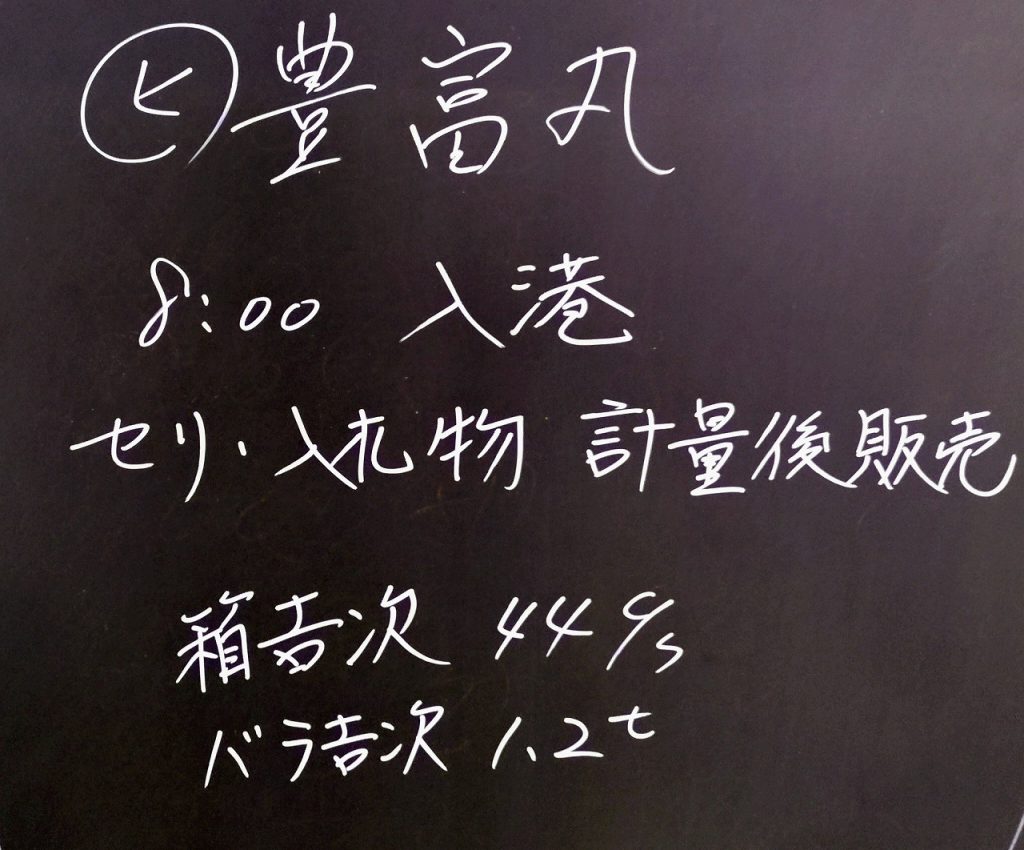 ㋪豊富丸
8:00 入港
セリ・入札物 計量後販売
箱吉次 44 c/s
バラ吉次 1.2t